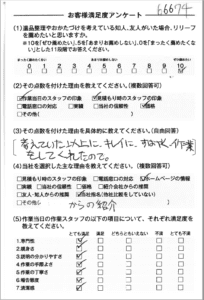 お客様満足度アンケート
F6674
(1)遺品整理やおかたづけを考えている知人、友人がいた場合、リリーフを薦めたいと思いますか。
※10を「ぜひ薦めたい」、5を「あまりお薦めしない」、0を「まったく薦めたくない」とした11段階でお教えください。
0 1 2 3 4 5 6 7 8 9 10
(2)その点数を付けた理由をお教えください。(複数回答可)
作業当日のスタッフの印象 見積もり時のスタッフの印象
電話窓口の対応 実績 当社の信頼性 価格
その他
(3)その点数を付けた理由を具体的に教えてください。(自由回答)
考えていた以上に、キレイに、すばやく作業
をしてくれたので。
(4)当社を選択した主な理由を教えてください。(複数回答可)
見積もり時のスタッフの印象 電話窓口の対応 ホームページの情報
実績 当社の信頼性 価格 紹介会社からの推薦
友人・知人からの推薦 他社比較をしていない
その他
からの紹介
(5)作業当日の作業スタッフの以下の項目について、それぞれ満足度を教えてください。
とても満足 満足 どちらともいえない 不満 とても不満
1.専門性
2.親身さ
3.説明の分かりやすさ
4.作業の手際よさ
5.作業の丁寧さ
6.報告頻度
7.清潔感